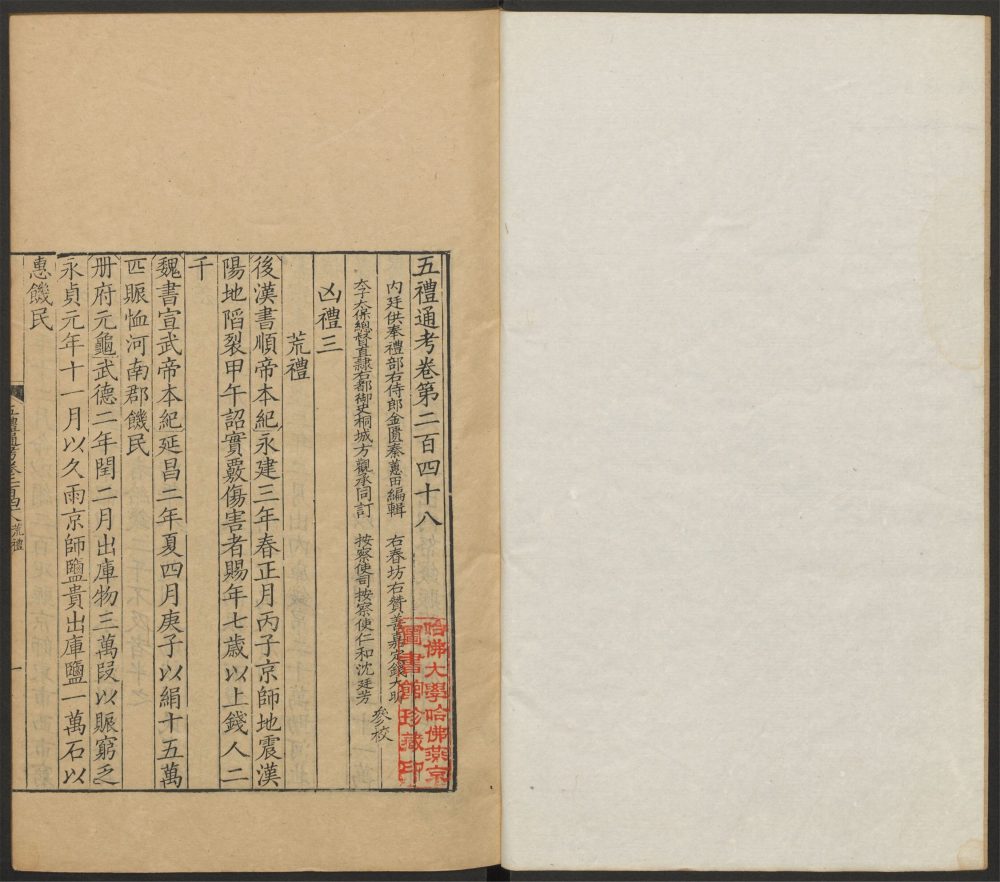 五禮通考卷第二百四十八
內廷供奉禮部右侍郎金匱秦蕙田編輯 右春坊右贊善嘉定錢大昕
太子太保總督直隸右都御史桐城方觀承同訂 按察使司按察使仁和沈廷芳 參校
凶禮三
荒禮
後漢書順帝本紀永建三年春正月丙子京師地震漢
陽地陷裂甲午詔實覈傷害者賜年七歲以上錢人二
千
魏書宣武帝本紀延昌二年夏四月庚子以絹十五萬
匹賑恤河南郡饑民
册府元龜武德二年閏二月出庫物三萬段以賑窮乏
永貞元年十一月以久雨京師鹽貴出庫鹽一萬石以
惠饑民
五禮通考卷二百四八 荒禮
一
哈佛大學哈佛燕京
圖書館珍藏印